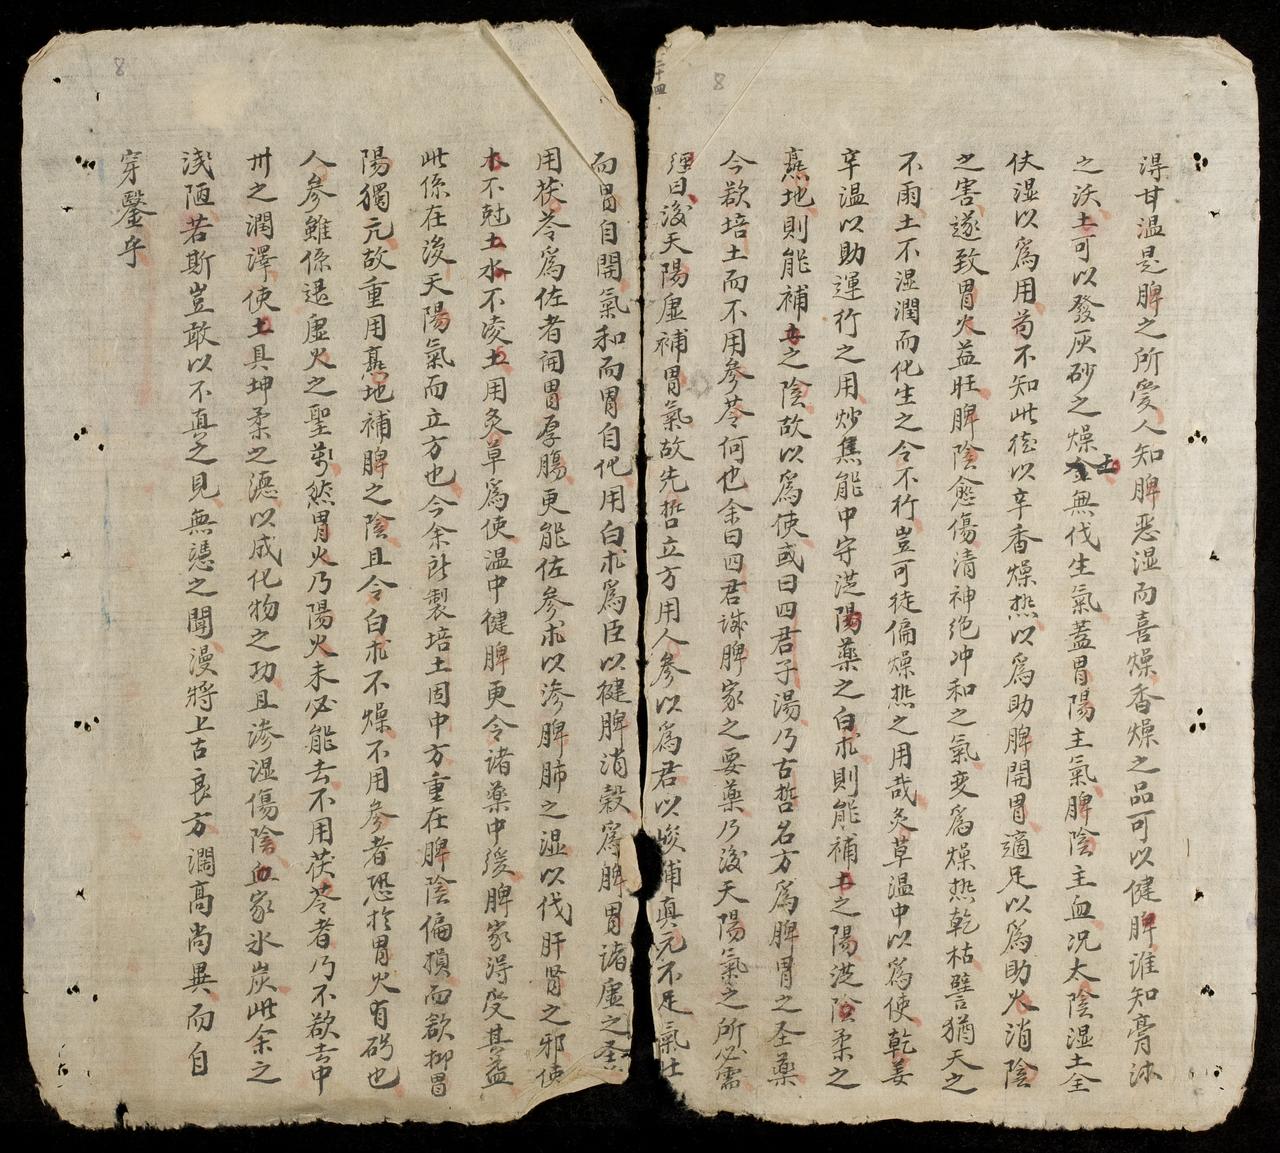 8
8
二十四
淂甘温是脾之所爱人知脾恶湿而喜燥香燥之品可以健脾谁知膏沐
之沃土可以發灰砂之燥土無伐生氣蓋胃陽主氣脾陰主血况太陰湿土全
仗湿以為用苟不知此徒以辛香燥热以為助脾開胃適足以為助火消陰
之害遂致胃火益旺脾陰愈傷清神绝冲和之氣变為燥热乾枯譬猶天之
不雨土不湿潤而化生之令不行豈可徒偏燥热之用哉炙草温中以為使乾姜
辛温以助運行之用炒焦能中守從陽藥之白朮則能補土之陽從陰柔之
熹地則能補土之陰故以為使或曰四君子湯乃古哲名方為脾胃之圣藥
今欲培土而不用參苓何也余曰四君誠脾家之要藥乃後天陽氣之所必需
經曰後天陽虚補胃氣故先哲立方用人參以為君以峻補真元不足氣壮
而胃自開氣和而胃自化用白朮為臣以健脾消穀為脾胃諸虚之圣
用茯苓為佐者開胃厚腸更能佐參朮以滲脾肺之湿以伐肝腎之邪使
木不尅土水不凌土用炙草為使温中健脾更令诸藥中援脾家淂受其益
此係在後天陽氣而立方也今余所製培土固中方重在脾陰偏損而欲抑胃
陽獨亢故重用熹地補脾之陰且令白朮不燥不用參者恐扵胃火有碍也
人參雖係退虚火之聖药然胃火乃陽火未必能去不用茯苓者乃不欲去中
州之潤澤使土具坤柔之德以成化物之功且滲湿傷陰血家氷炭此余之
浅陋若斯豈敢以不真之見無憑之聞漫將上古良方濶高尚異而自
穿鑿乎